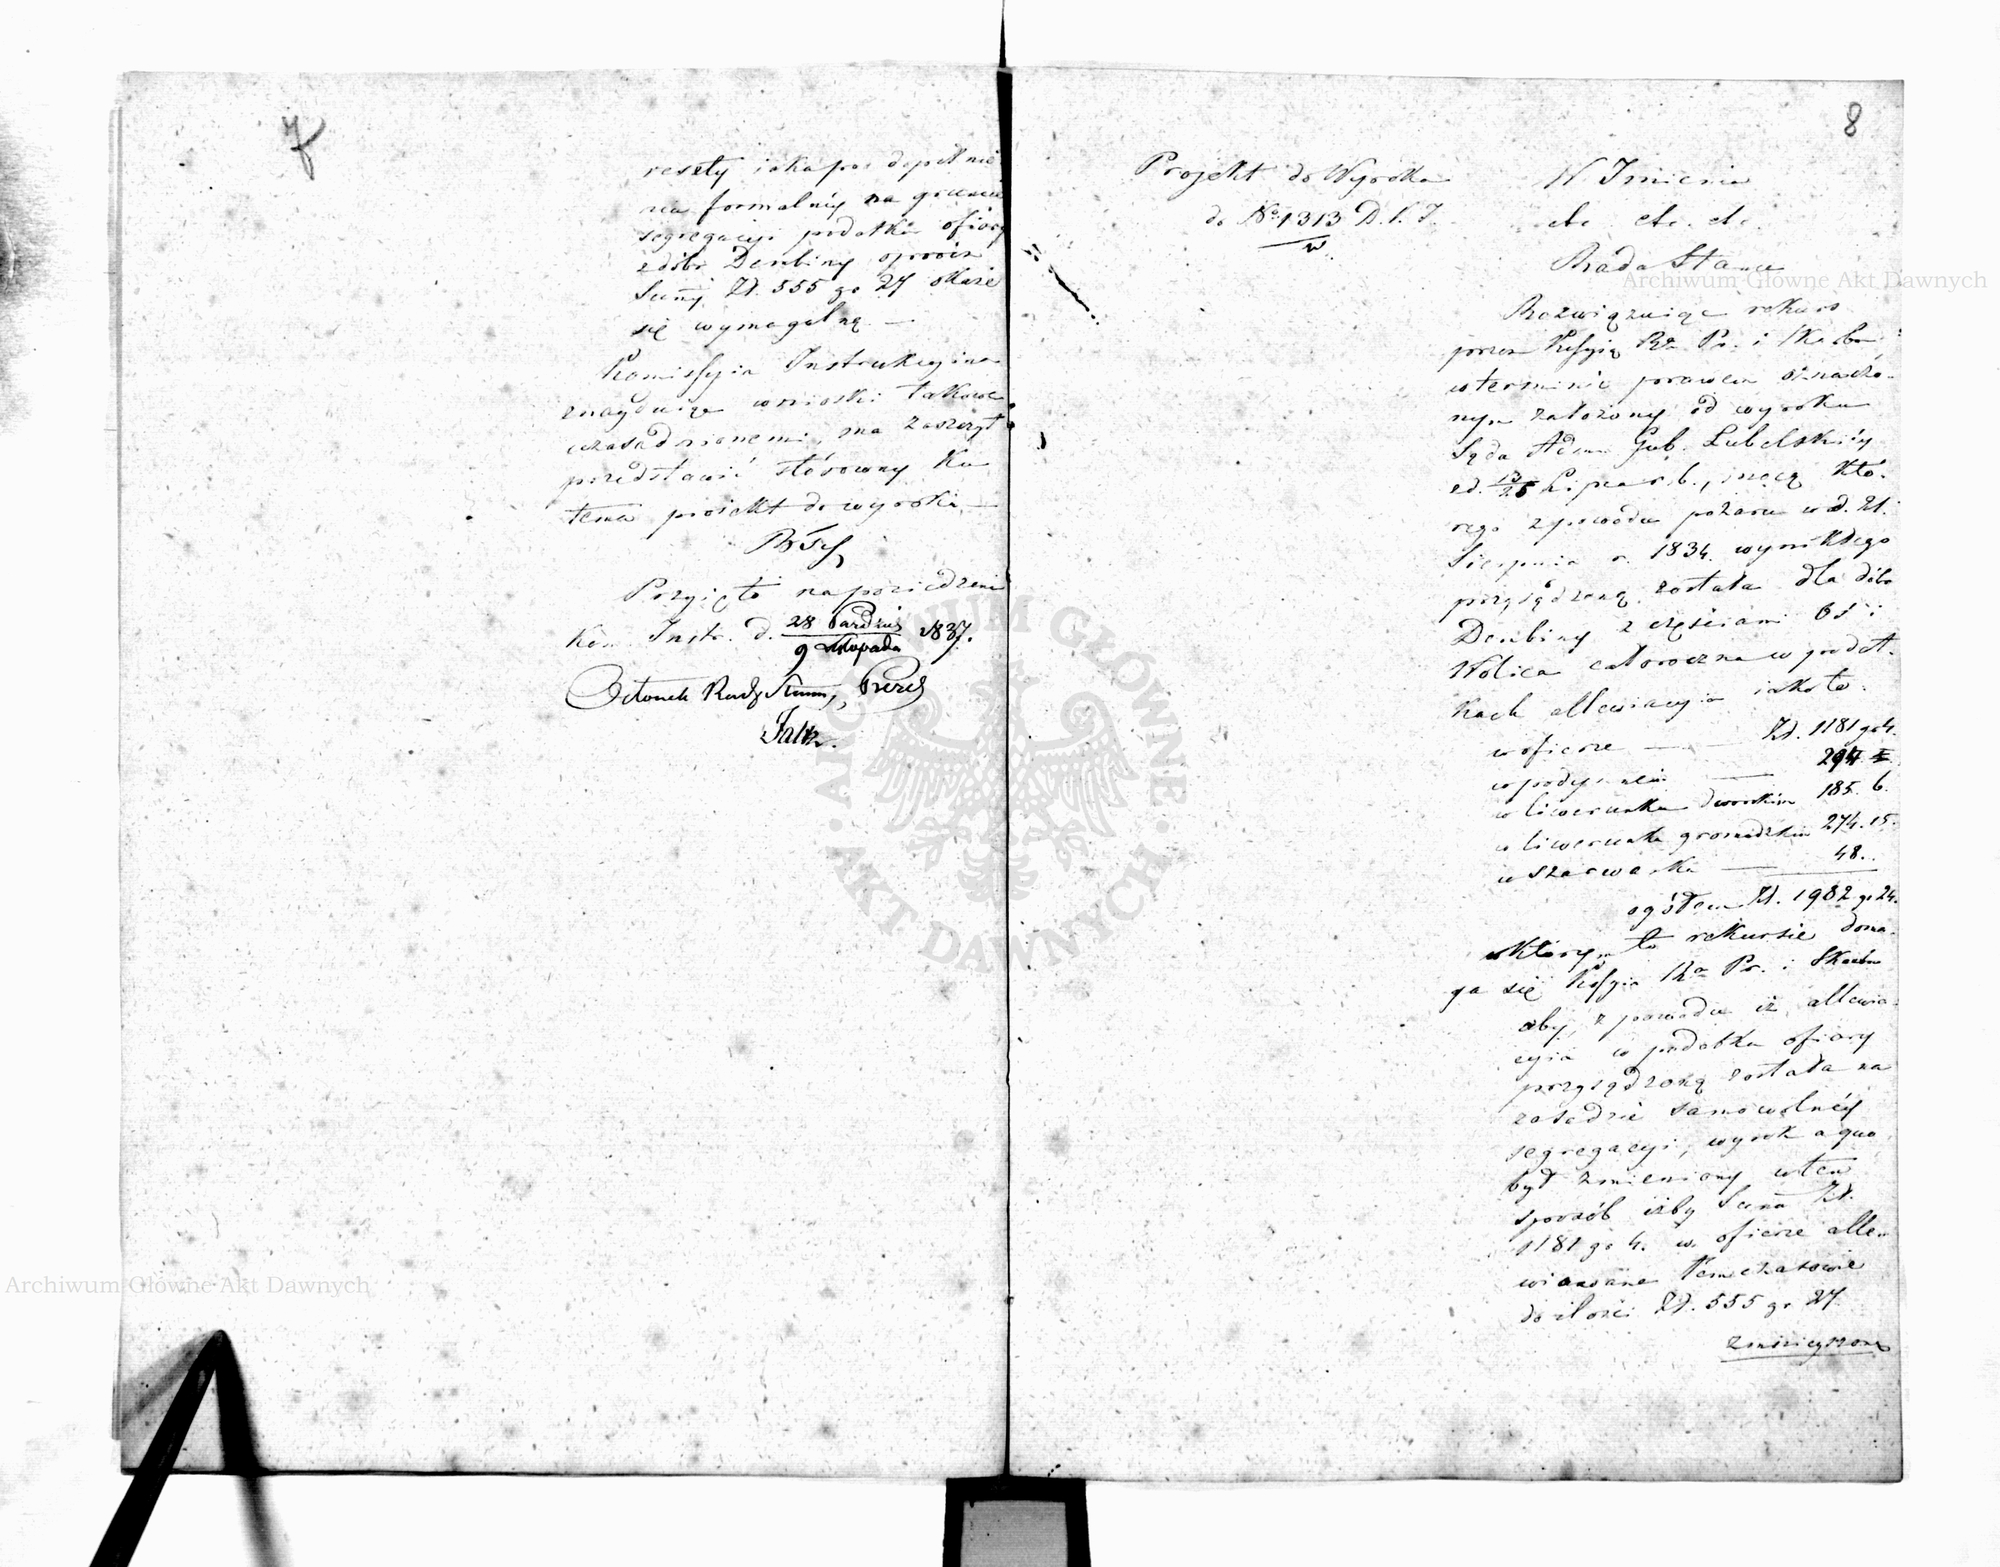 7
reszty iaka po dopełnie
niu formalnéy na gruncie
segregacyi podatku ofiary
z dóbr Dembiny oprócz
Summy Zł. 555 gr 27 okaże
się wymagalną. —
Kommissyia Instrukcyina
znayduiąc wnioski takowe
uzasadnionemi, ma zaszczyt
przedstawić stósowny ku
temu proiekt do wyroku. —
Przyięto na posiedzeniu
Kom. Instr. d. 28 Paździer / 9 Listopada 1837.
Członek Rady Stanu, Prezes
8
Projekt do Wyroku
do No 1313 D. K. I.
W Imieniu
etc. etc. etc.
Rada Stanu
Rozwiązuiąc rekurs
przez Kssyią Rz. Pr. i Skarbu
w terminie prawem oznaczo-
nym założony od wyroku
Sądu Adm. Gub. Lubelskiéy
z d. 13/25 Lipca r. b., mocą któ-
rego z powodu pożaru w d. 21.
Sierpnia r. 1834. wynikłego
przysądzoną została dla dóbr
Dembiny z częściami
Wolica całoroczna w podat-
kach allewiacyia iako to:
w ofierze — Zł. 1181 gr 4.
w podymnem — 294
w liwerunku dworskim 185. 6.
w liwerunku gromadzkim 274. 15.
w szarwarku — 48.
ogółem Zł. 1982 gr 24.
w którym to rekursie doma-
ga się Kssyia Rza Pr. i Skarbu
aby, z powodu iż allewia-
cyia w podatku ofiary
przysądzoną została na
zasadzie samowolnéy
segregacyi, wyrok a quo
był zmieniony w ten
sposób iżby Summa Zł.
1181 gr 4. w ofierze alle-
wiowana tymczasowie
do ilości Zł. 555 gr. 27
zmnieyszoną
Archiwum Główne Akt Dawnych
Archiwum Główne Akt Dawnych
ARCHIWUM GŁÓWNE · AKT DAWNYCH ·